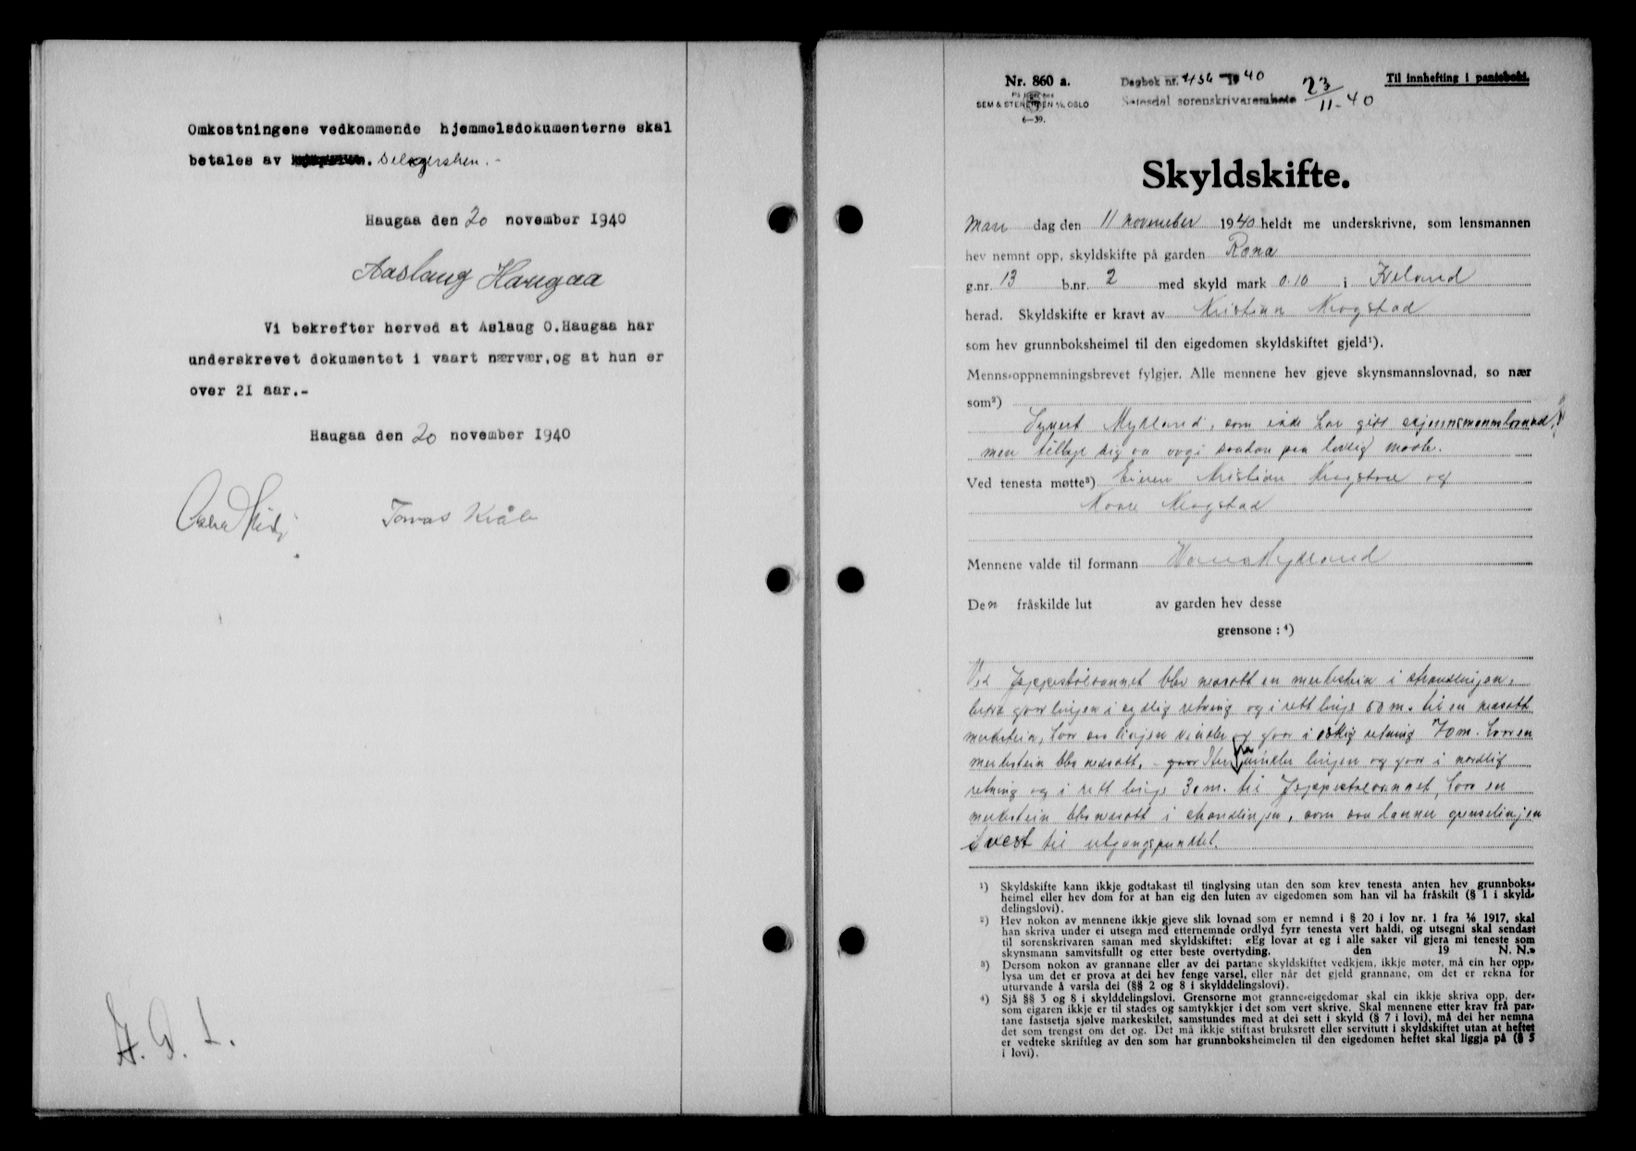 Omkostningene vedkommende hjemmelsdokumenterne skal
betales av selgersken.-
Haugaa den 20 november 1940
Aaslaug Haugaa
Vi bekrefter herved at Aslaug O.Haugaa har
underskrevet dokumentet i vaart nærvær, og at hun er
over 21 aar.-
Haugaa den 20 november 1940
Tomas Kvåle
Nr. 860 a.
SEM & STENERSEN A/S, OSLO
6—39.
Dagbok nr. 1940
Setesdal sorenskrivarembete 23/11-40
Til innhefting i pantebokt.
Skyldskifte.
Man dag den 11 november 1940 heldt me underskrivne, som lensmannen
hev nemnt opp, skyldskifte på garden
g.nr. 13 b.nr. 2 med skyld mark 0.10 i
herad. Skyldskifte er kravt av Kristian Krogstad
som hev grunnboksheimel til den eigedomen skyldskiftet gjeld¹).
Menns-oppnemningsbrevet fylgjer. Alle mennene hev gjeve skynsmannslovnad, so nær
som²)
Mykland, som ikke har gitt skjønnsmannslovnad,
men sig
Ved tenesta møtte³) Eieren Kristian Krogstad og
Krogstad
Mennene valde til formann Hans Mykland
Den fråskilde lut av garden hev desse
grensone : ⁴)
Ved blev nedsatt en merkestein i
linjen i sydlig retning og i rett linje 50 m. til en nedsatt
merkestein, hvor linjen og gaar i retning 70 m. hvor en
merkestein blev nedsatt, linjen og gaar i nordlig
retning og i rett linje 30 m. til hvor en
merkestein blev nedsatt i som danner grenselinjen
i vest til utgangspunktet.
¹) Skyldskifte kann ikkje godtakast til tinglysing utan den som krev tenesta anten hev grunnboks-
heimel eller hev dom for at han eig den luten av eigedomen som han vil ha fråskilt (§ 1 i skyld-
delingslovi).
²) Hev nokon av mennene ikkje gjeve slik lovnad som er nemnd i § 20 i lov nr. 1 fra 1917, skal
han skriva under ei utsegn med etternemnde ordlyd fyrr tenesta vert haldi, og utsegni skal sendast
til sorenskrivaren saman med skyldskiftet: «Eg lovar at eg i alle saker vil gjera mi teneste som
skynsmann samvitsfullt og etter beste overtyding. den 19 N. N.»
³) Dersom nokon av grannane eller av dei partane skyldskiftet vedkjem, ikkje møter, må ein her opp-
lysa um det er prova at dei hev fenge varsel, eller når det gjeld grannane, om det er rekna for
uturvande å varsla dei (§§ 2 og 8 i skylddelingslovi).
⁴) Sjå §§ 3 og 8 i skylddelingslovi. Grensorne mot granne-eigedomar skal ein ikkje skriva opp, der-
som eigaren ikkje er til stades og samtykkjer i det som vert skrive. Skal mennene etter krav frå par-
tane fastsetja sjølve markeskilet, samstundes med at dei sett i skyld (§ 7 i lovi), må dei her nemna
det som trengst om det og. Det må ikkje stiftast bruksrett eller servitutt i skyldskiftet utan at heftet
er vedteke skriftleg av den som har grunnboksheimelen til den eigedomen heftet skal liggja på (§ 5
i lovi).